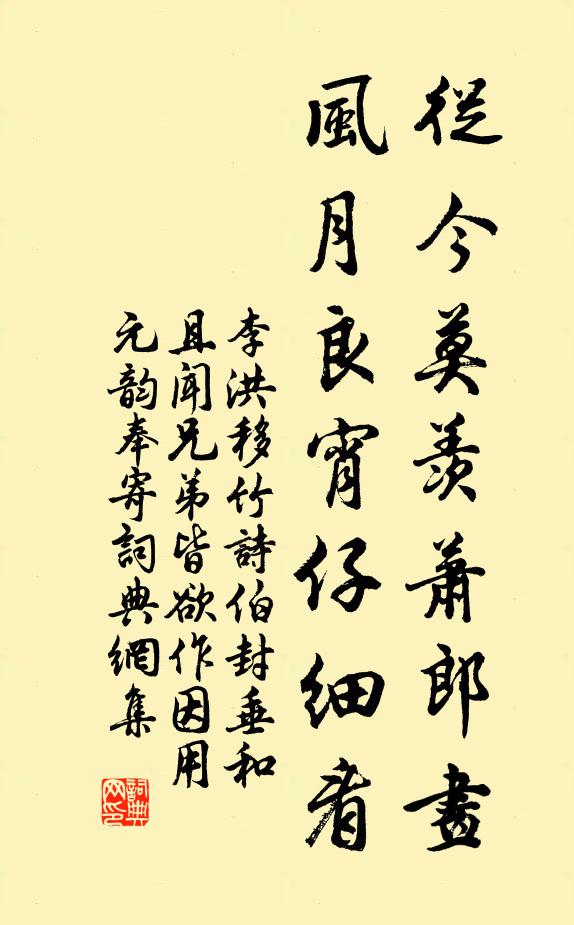 從今莫羨蕭郎畫
風月良宵仔細看
李洪移竹詩伯封垂和
且聞兄弟皆欲作因用
元韵奉寄詞典網集
詞典
网印